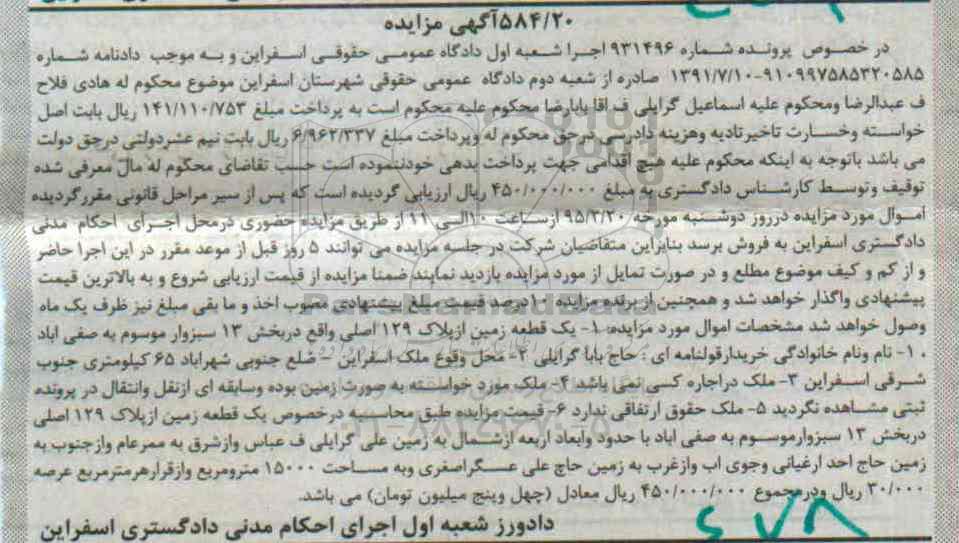 ۵۸۴/۲۰آگهی مزایده
در خصوص پرونده شماره ۹۳۱۴۹۶ اجرا شعبه اول دادگاه عمومی حقوقی اسفراین و به موجب دادنامه شماره
۹۱۰۹۹۷۵۸۵۳۲۰۵۸۵-۱۳۹۱/۷/۱۰ صادره از شعبه دوم دادگاه عمومی حقوقی شهرستان اسفراین موضوع محکوم له هادی فلاح
ف عبدالرضا ومحکوم علیه اسماعیل گرایلی ف اقا بابارضا محکوم علیه محکوم است به پرداخت مبلغ ۱۴۱/۱۱۰/۷۵۳ ریال بابت اصل
خواسته وخسارت تاخیرتادیه وهزینه دادرسی درحق محکوم له وپرداخت مبلغ ۶/۹۶۲/۳۳۷ ریال بابت نیم عشردولتی درحق دولت
می باشد باتوجه به اینکه محکوم علیه هیچ اقدامی جهت پرداخت بدهی خودننموده است حسب تقاضای محکوم له مال معرفی شده
توقیف وتوسط کارشناس دادگستری به مبلغ ۴۵۰/۰۰۰/۰۰۰ ریال ارزیابی گردیده است که پس از سیر مراحل قانونی مقررگردیده
اموال مورد مزایده درروز دوشنبه مورخه ۹۵/۳/۲۰ ازساعت ۱۰الی ۱۱ از طریق مزایده حضوری درمحل اجرای احکام مدنی
دادگستری اسفراین به فروش برسد بنابراین متقاضیان شرکت در جلسه مزایده می توانند ۵ روز قبل از موعد مقرر در این اجرا حاضر
و از کم و کیف موضوع مطلع و در صورت تمایل از مورد مزایده بازدید نمایند ضمنا مزایده از قیمت ارزیابی شروع و به بالاترین قیمت
پیشنهادی واگذار خواهد شد و همچنین از برنده مزایده ۱۰درصد قیمت مبلغ پیشنهادی مصوب اخذ و ما بقی مبلغ نیز ظرف یک ماه
وصول خواهد شد مشخصات اموال مورد مزایده:۱- یک قطعه زمین ازپلاک ۱۲۹ اصلی واقع دربخش ۱۳ سبزوار موسوم به صفی اباد
۱۰- نام ونام خانوادگی خریدارقولنامه ای : حاج بابا گرایلی ۲- محل وقوع ملک اسفراین - ضلع جنوبی شهراباد ۶۵ کیلومتری جنوب
شرقی اسفراین ۳- ملک دراجاره کسی نمی باشد ۴- ملک مورد خواسته به صورت زمین بوده وسابقه ای ازنقل وانتقال در پرونده
ثبتی مشاهده نگردید ۵- ملک حقوق ارتفاقی ندارد ۶- قیمت مزایده طبق محاسبه درخصوص یک قطعه زمین ازپلاک ۱۲۹ اصلی
دربخش ۱۳ سبزوارموسوم به صفی اباد با حدود وابعاد اربعه ازشمال به زمین علی گرایلی ف عباس وازشرق به ممرعام وازجنوب به
زمین حاج احد ارغیانی وجوی اب وازغرب به زمین حاج علی عسگراصغری وبه مساحت ۱۵۰۰۰ مترومربع وازقرارهرمترمربع عرصه
۳۰/۰۰۰ ریال ودرمجموع ۴۵۰/۰۰۰/۰۰۰ ریال معادل (چهل وپنج میلیون تومان) می باشد.
دادورز شعبه اول اجرای احکام مدنی دادگستری اسفراین